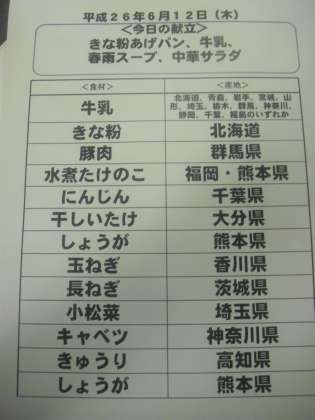 平成26年6月12日（木）
＜今日の献立＞
きな粉あげパン、牛乳、
春雨スープ、中華サラダ
＜食材＞ ＜産地＞
牛乳 北海道、青森、岩手、宮城、山
形、埼玉、栃木、群馬、神奈川、
静岡、千葉、福島のいずれか
きな粉 北海道
豚肉 群馬県
水煮たけのこ 福岡・熊本県
にんじん 千葉県
干しいたけ 大分県
しょうが 熊本県
玉ねぎ 香川県
長ねぎ 茨城県
小松菜 埼玉県
キャベツ 神奈川県
きゅうり 高知県
しょうが 熊本県